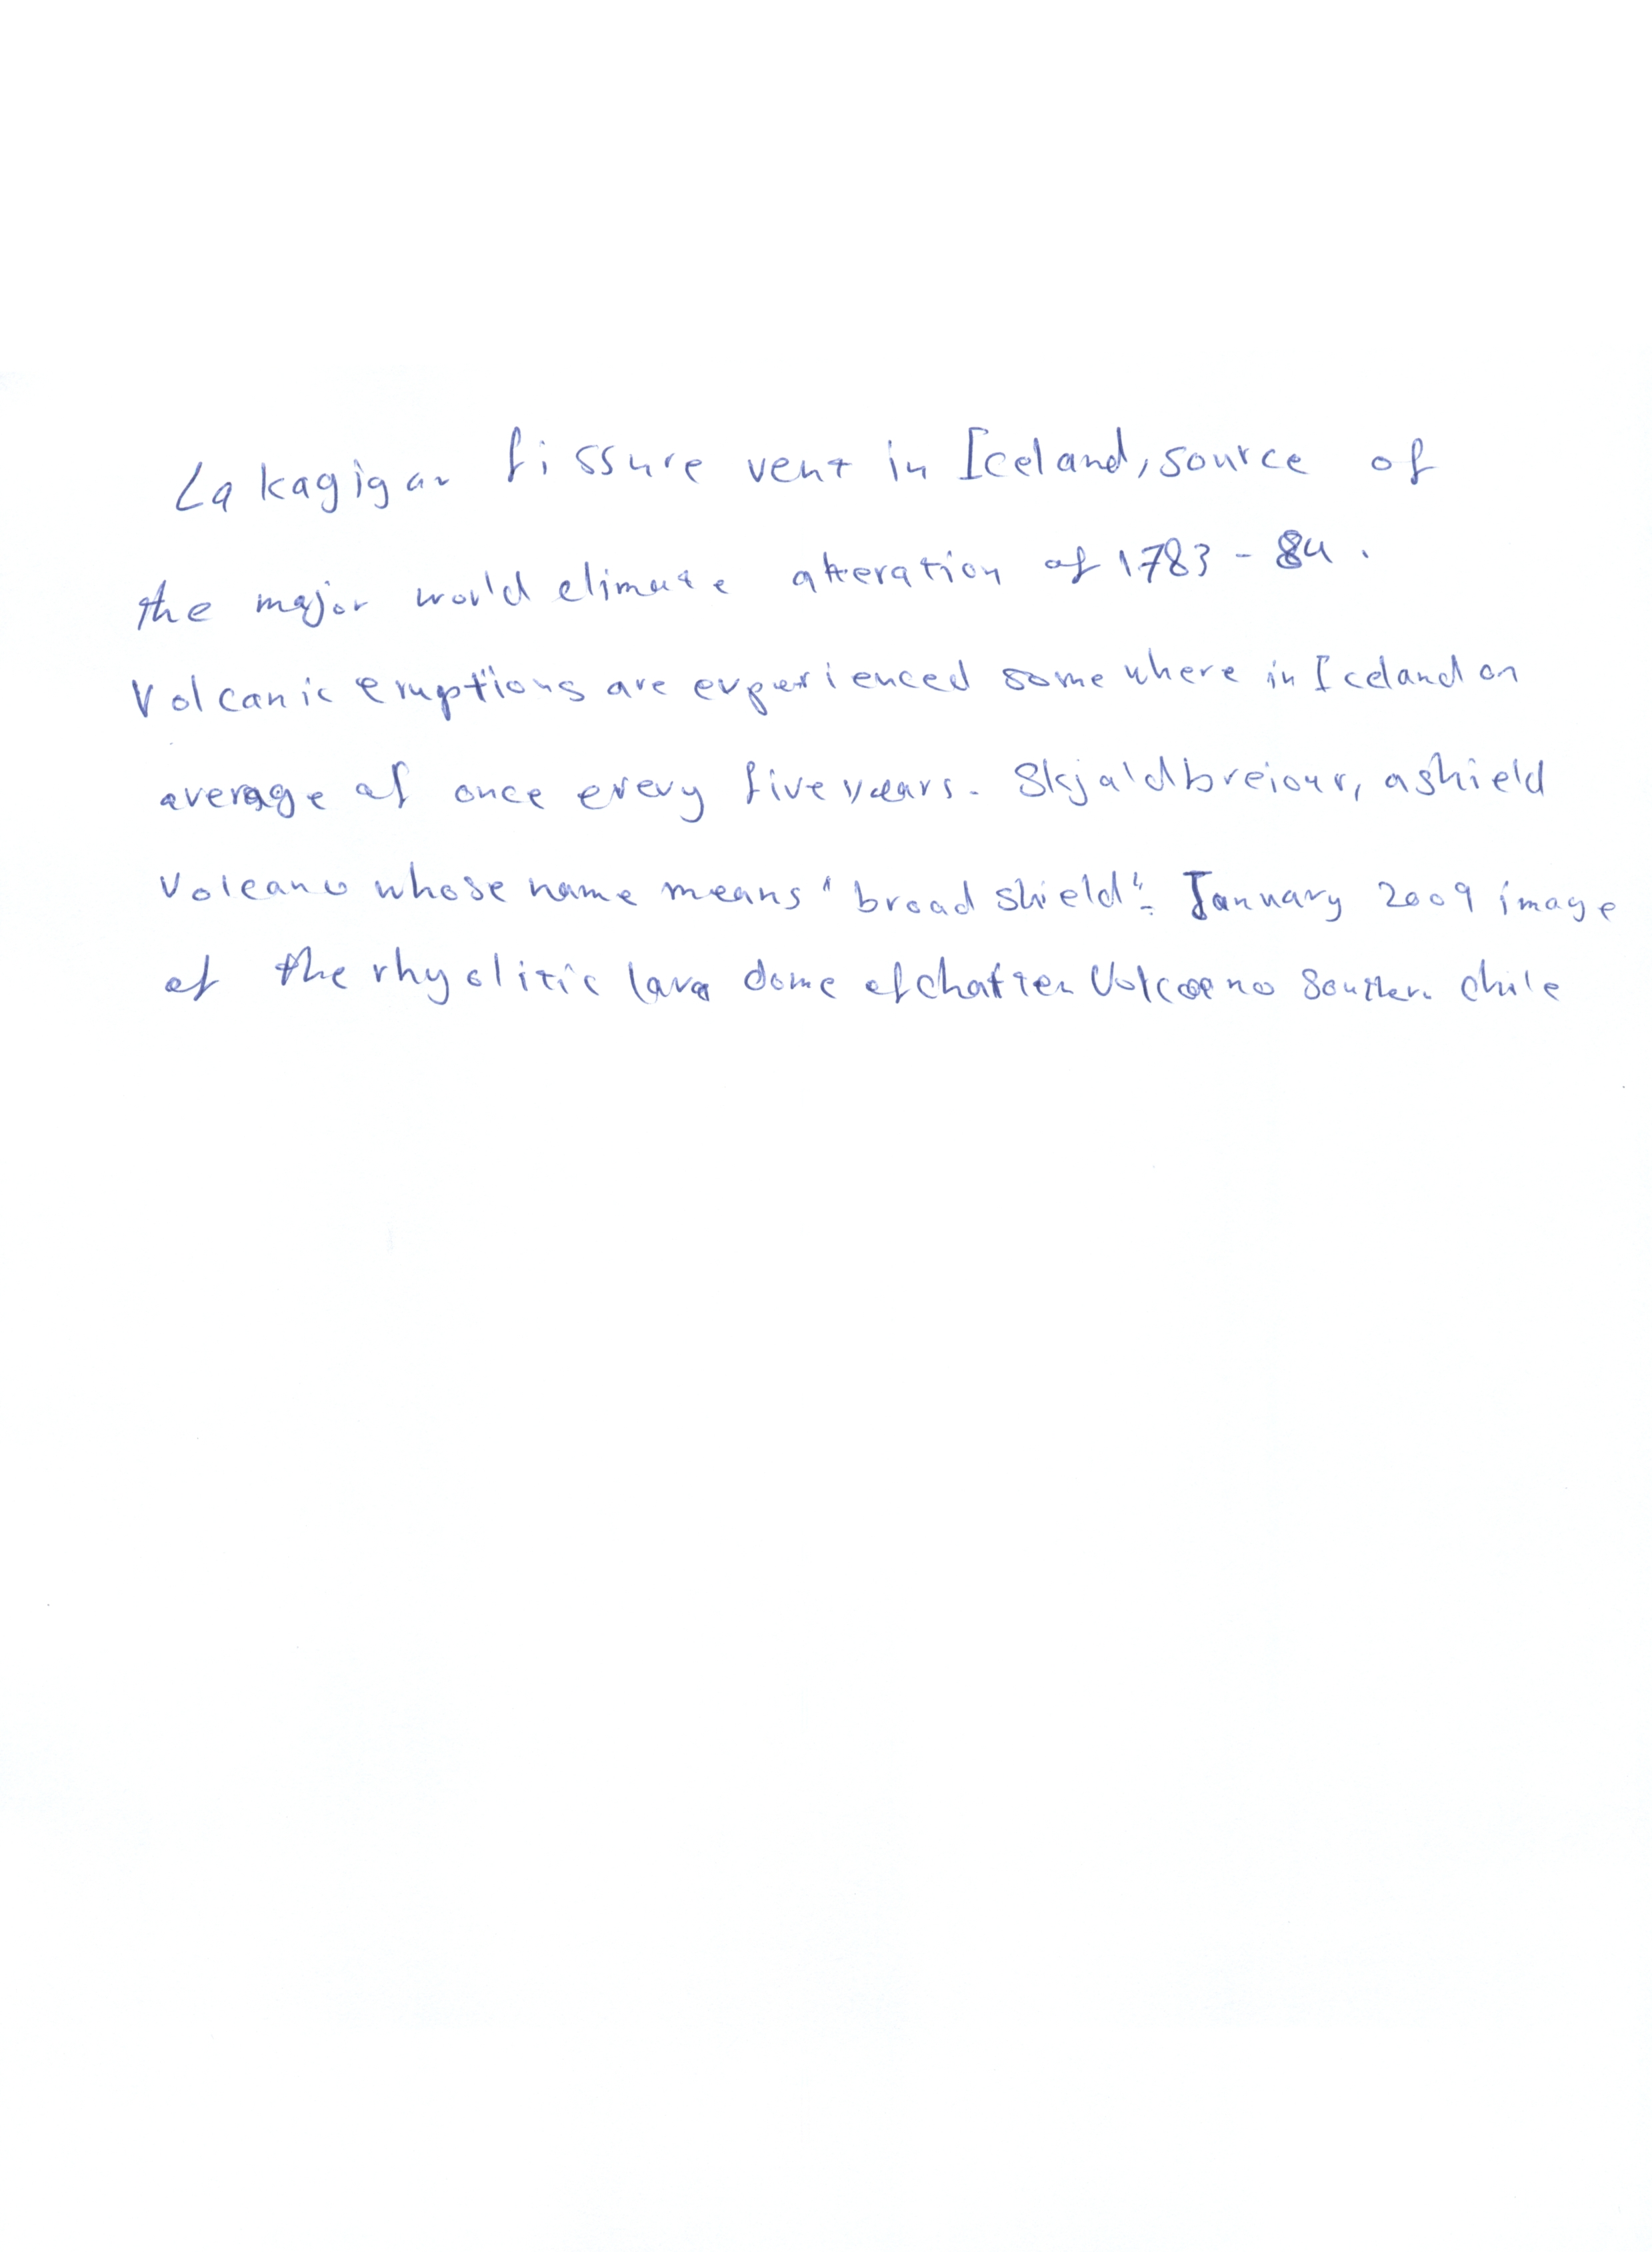 Lakagigar fissure vent in Iceland, source of
the major world climate alteration of 1783-84.
Volcanic eruptions are experienced somewhere in Iceland on
average of once every five years. Skjaldbreiour, a shield
Volcano whose name means "broad shield". January 2009 image
of the rhyolitic lava dome of chaiten Volcano Southern chile